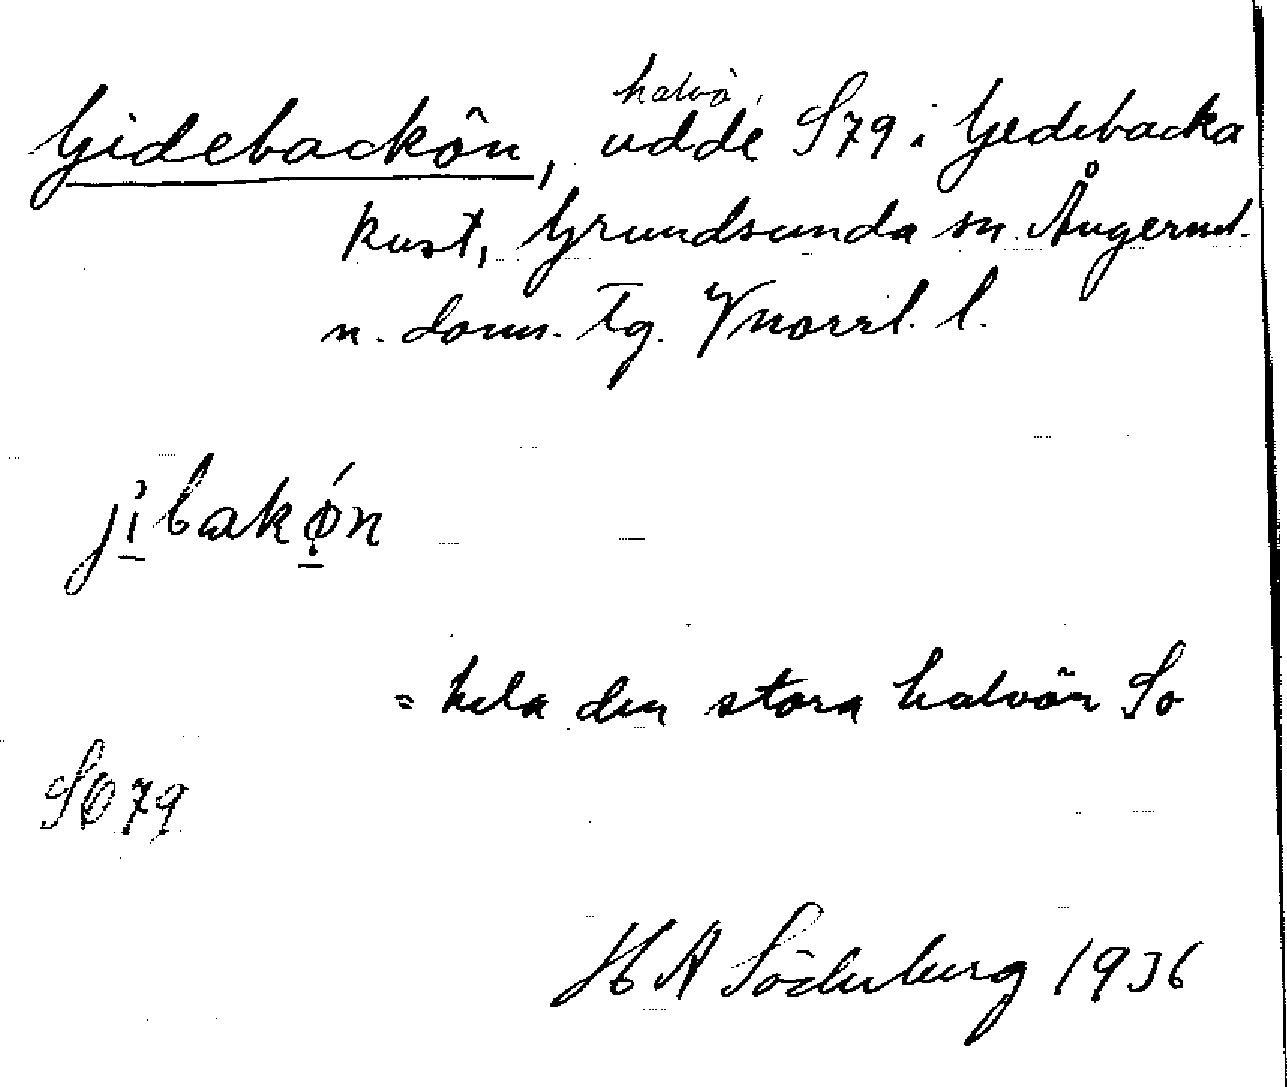 halvö
Gidebackön, udde S79 i Gedebacka
kust, Grundsunda sn. Ångerml.
n. doms. tg. Vnorrl. l.
jibakǿn
= hela den stora halvön So
SO79
H A Söderberg 1936